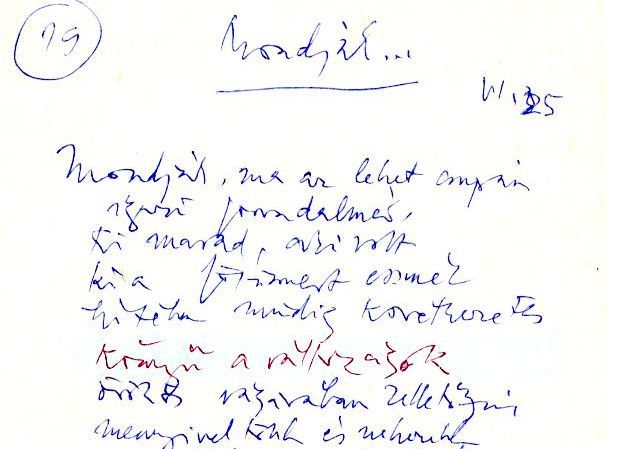 19
Mondják...
VI. 25
Mondják, ma az lehet csupán
igazi forradalmár,
ki marad, aki volt
ki a fölismert eszmék
hitében mindig következetes
könnyű a változások
örökös vásárában
mennyivel több és nehezebb